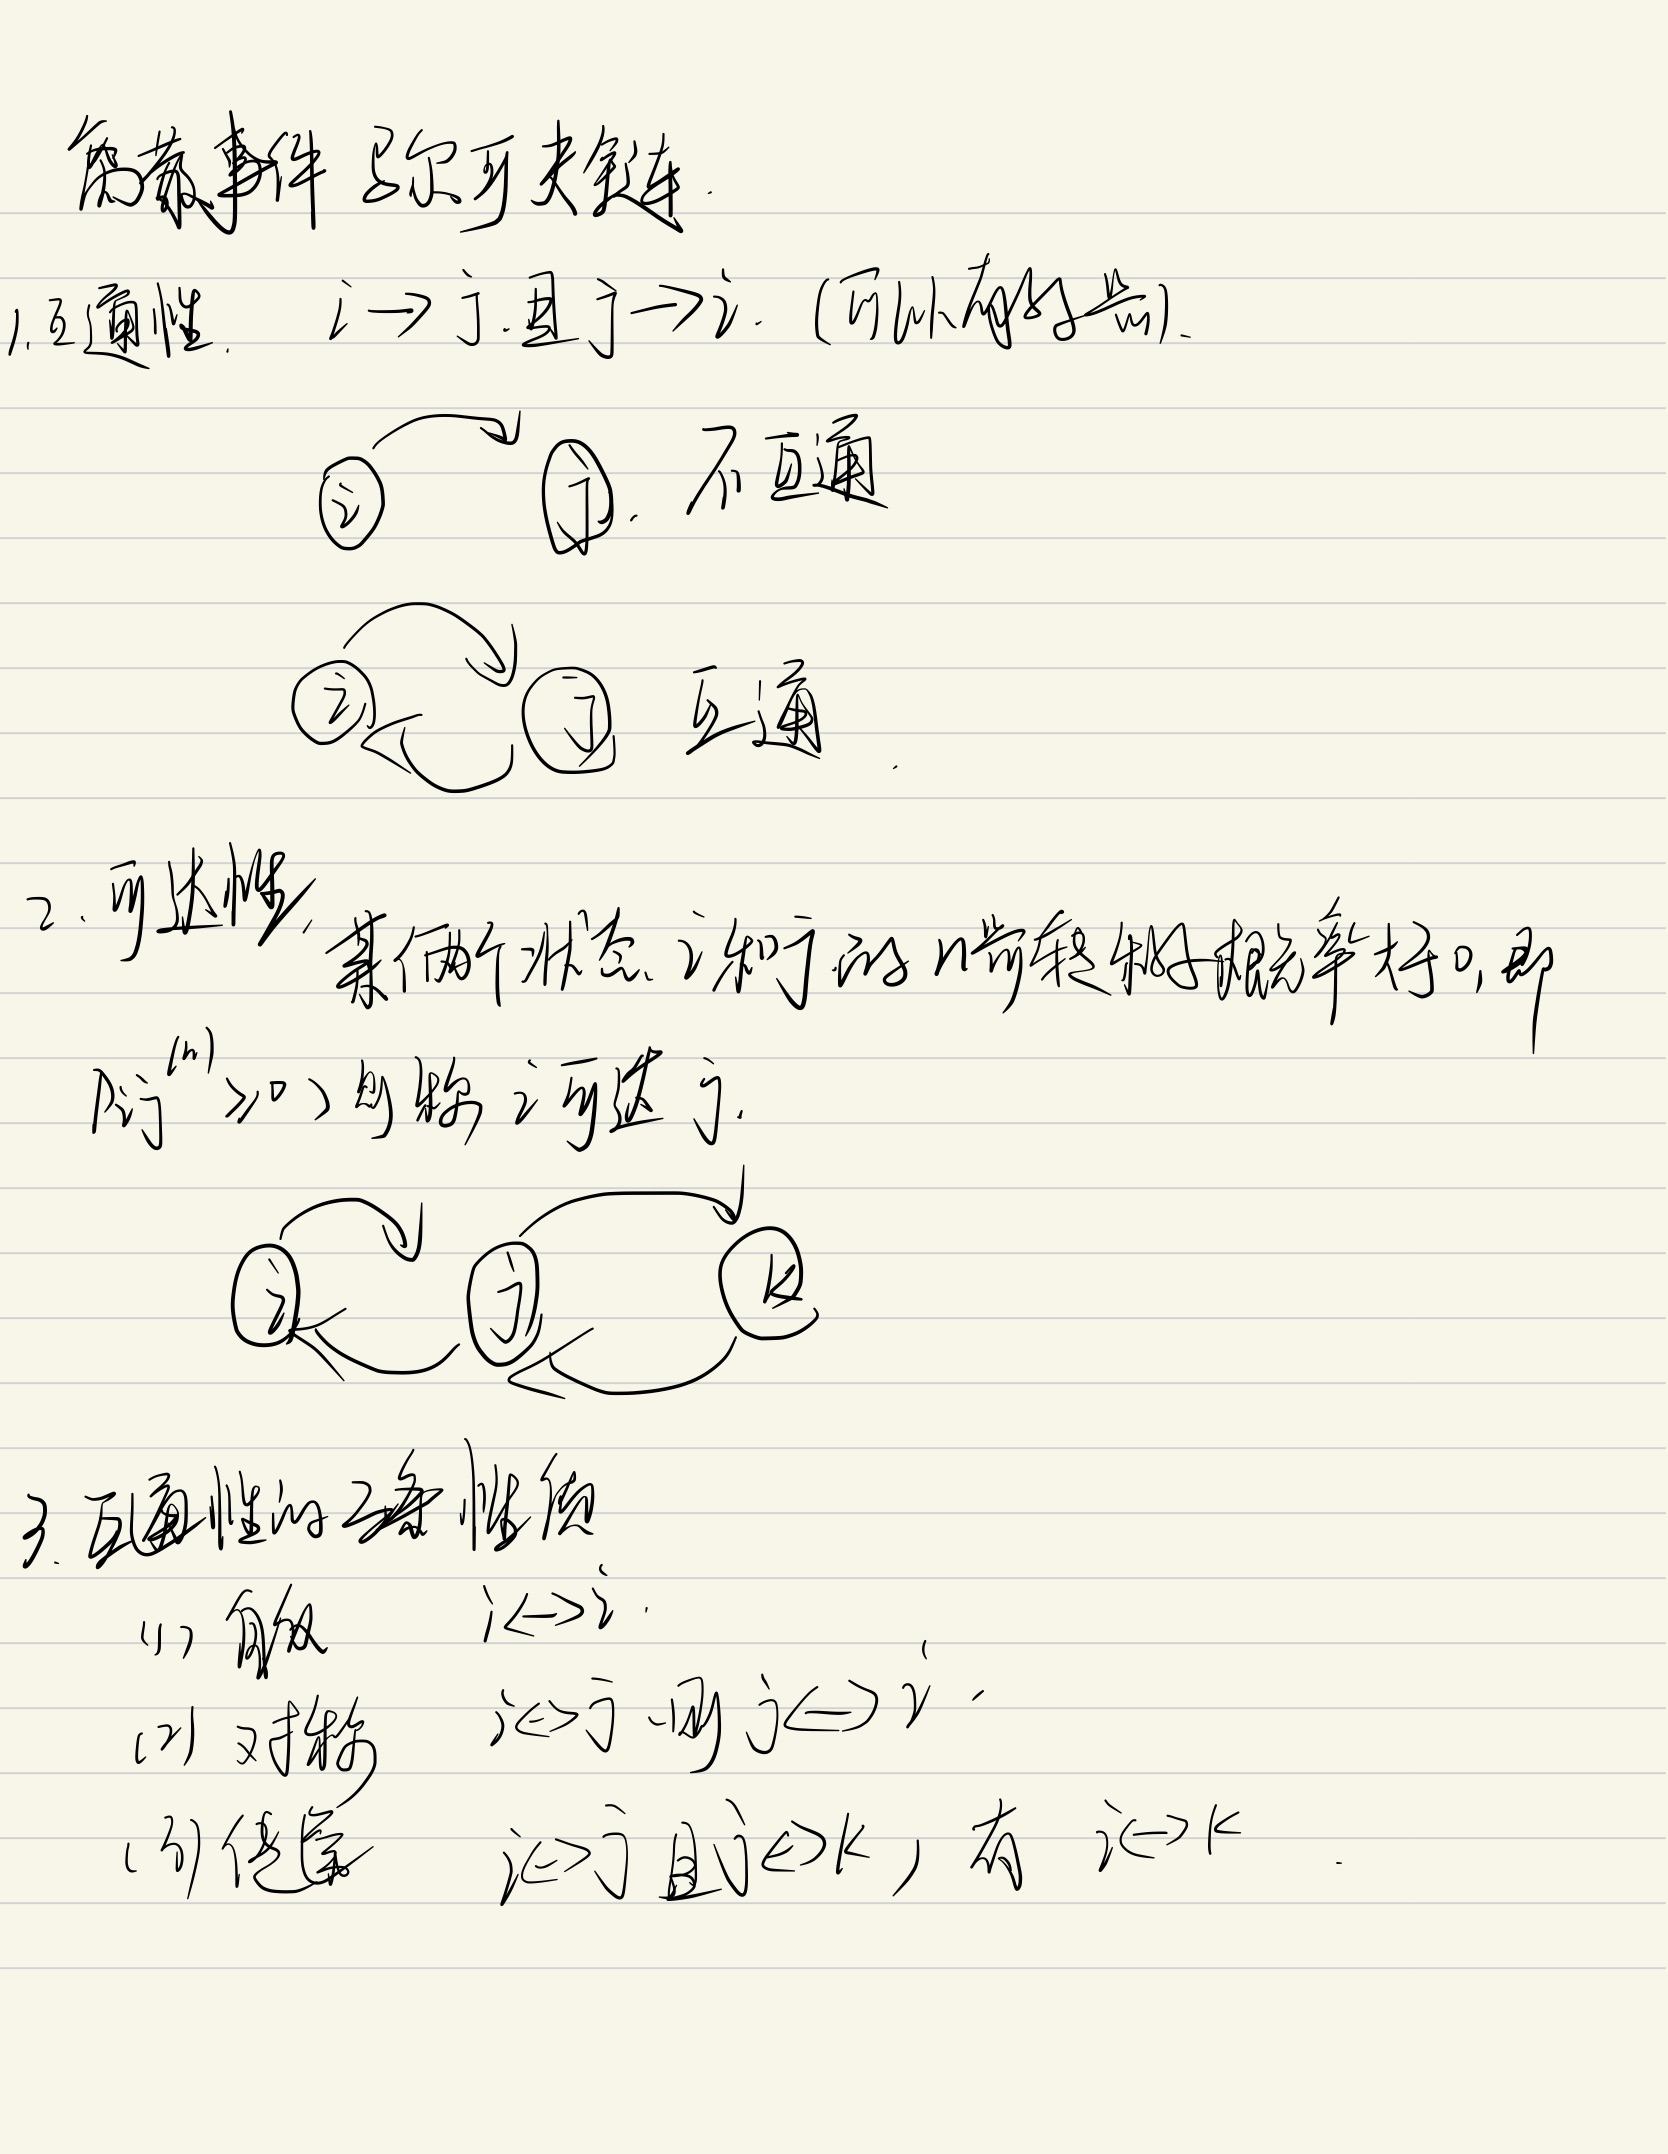 离散事件 马尔可夫链.
1.互通性. i→j.且j→i. (可以有好点).
i j. 不互通
i j 互通
2.可达性, 某俩个状态 i和j的n阶转移概率大于0,即
Pij⁽ⁿ⁾≥0,则称i可达j.
i j k
3.互通性的三条性质
(1) 自反 i<->i.
(2) 对称 i<->j.则 j<->i.
(3) 传 i<->j且j<->k,有 i<->k.